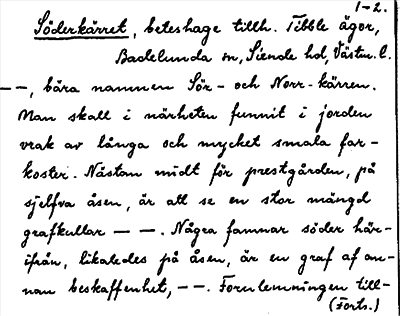 1-2.
Söderkärret, beteshage tillh. Tibble ägor,
Badelunda sn, Siende hd, Västm. l.
— —, bära namnen Sör- och Norr-kärren.
Man skall i närheten funnit i jorden
vrak av långa och mycket smala far-
koster. Nästan midt för prestgården, på
sjelfva åsen, är att se en stor mängd
grafkullar — —. Några famnar söder här-
ifrån, likaledes på åsen, är en graf af an-
nan beskaffenhet, — —. Fornlemningen till-
(Forts.)